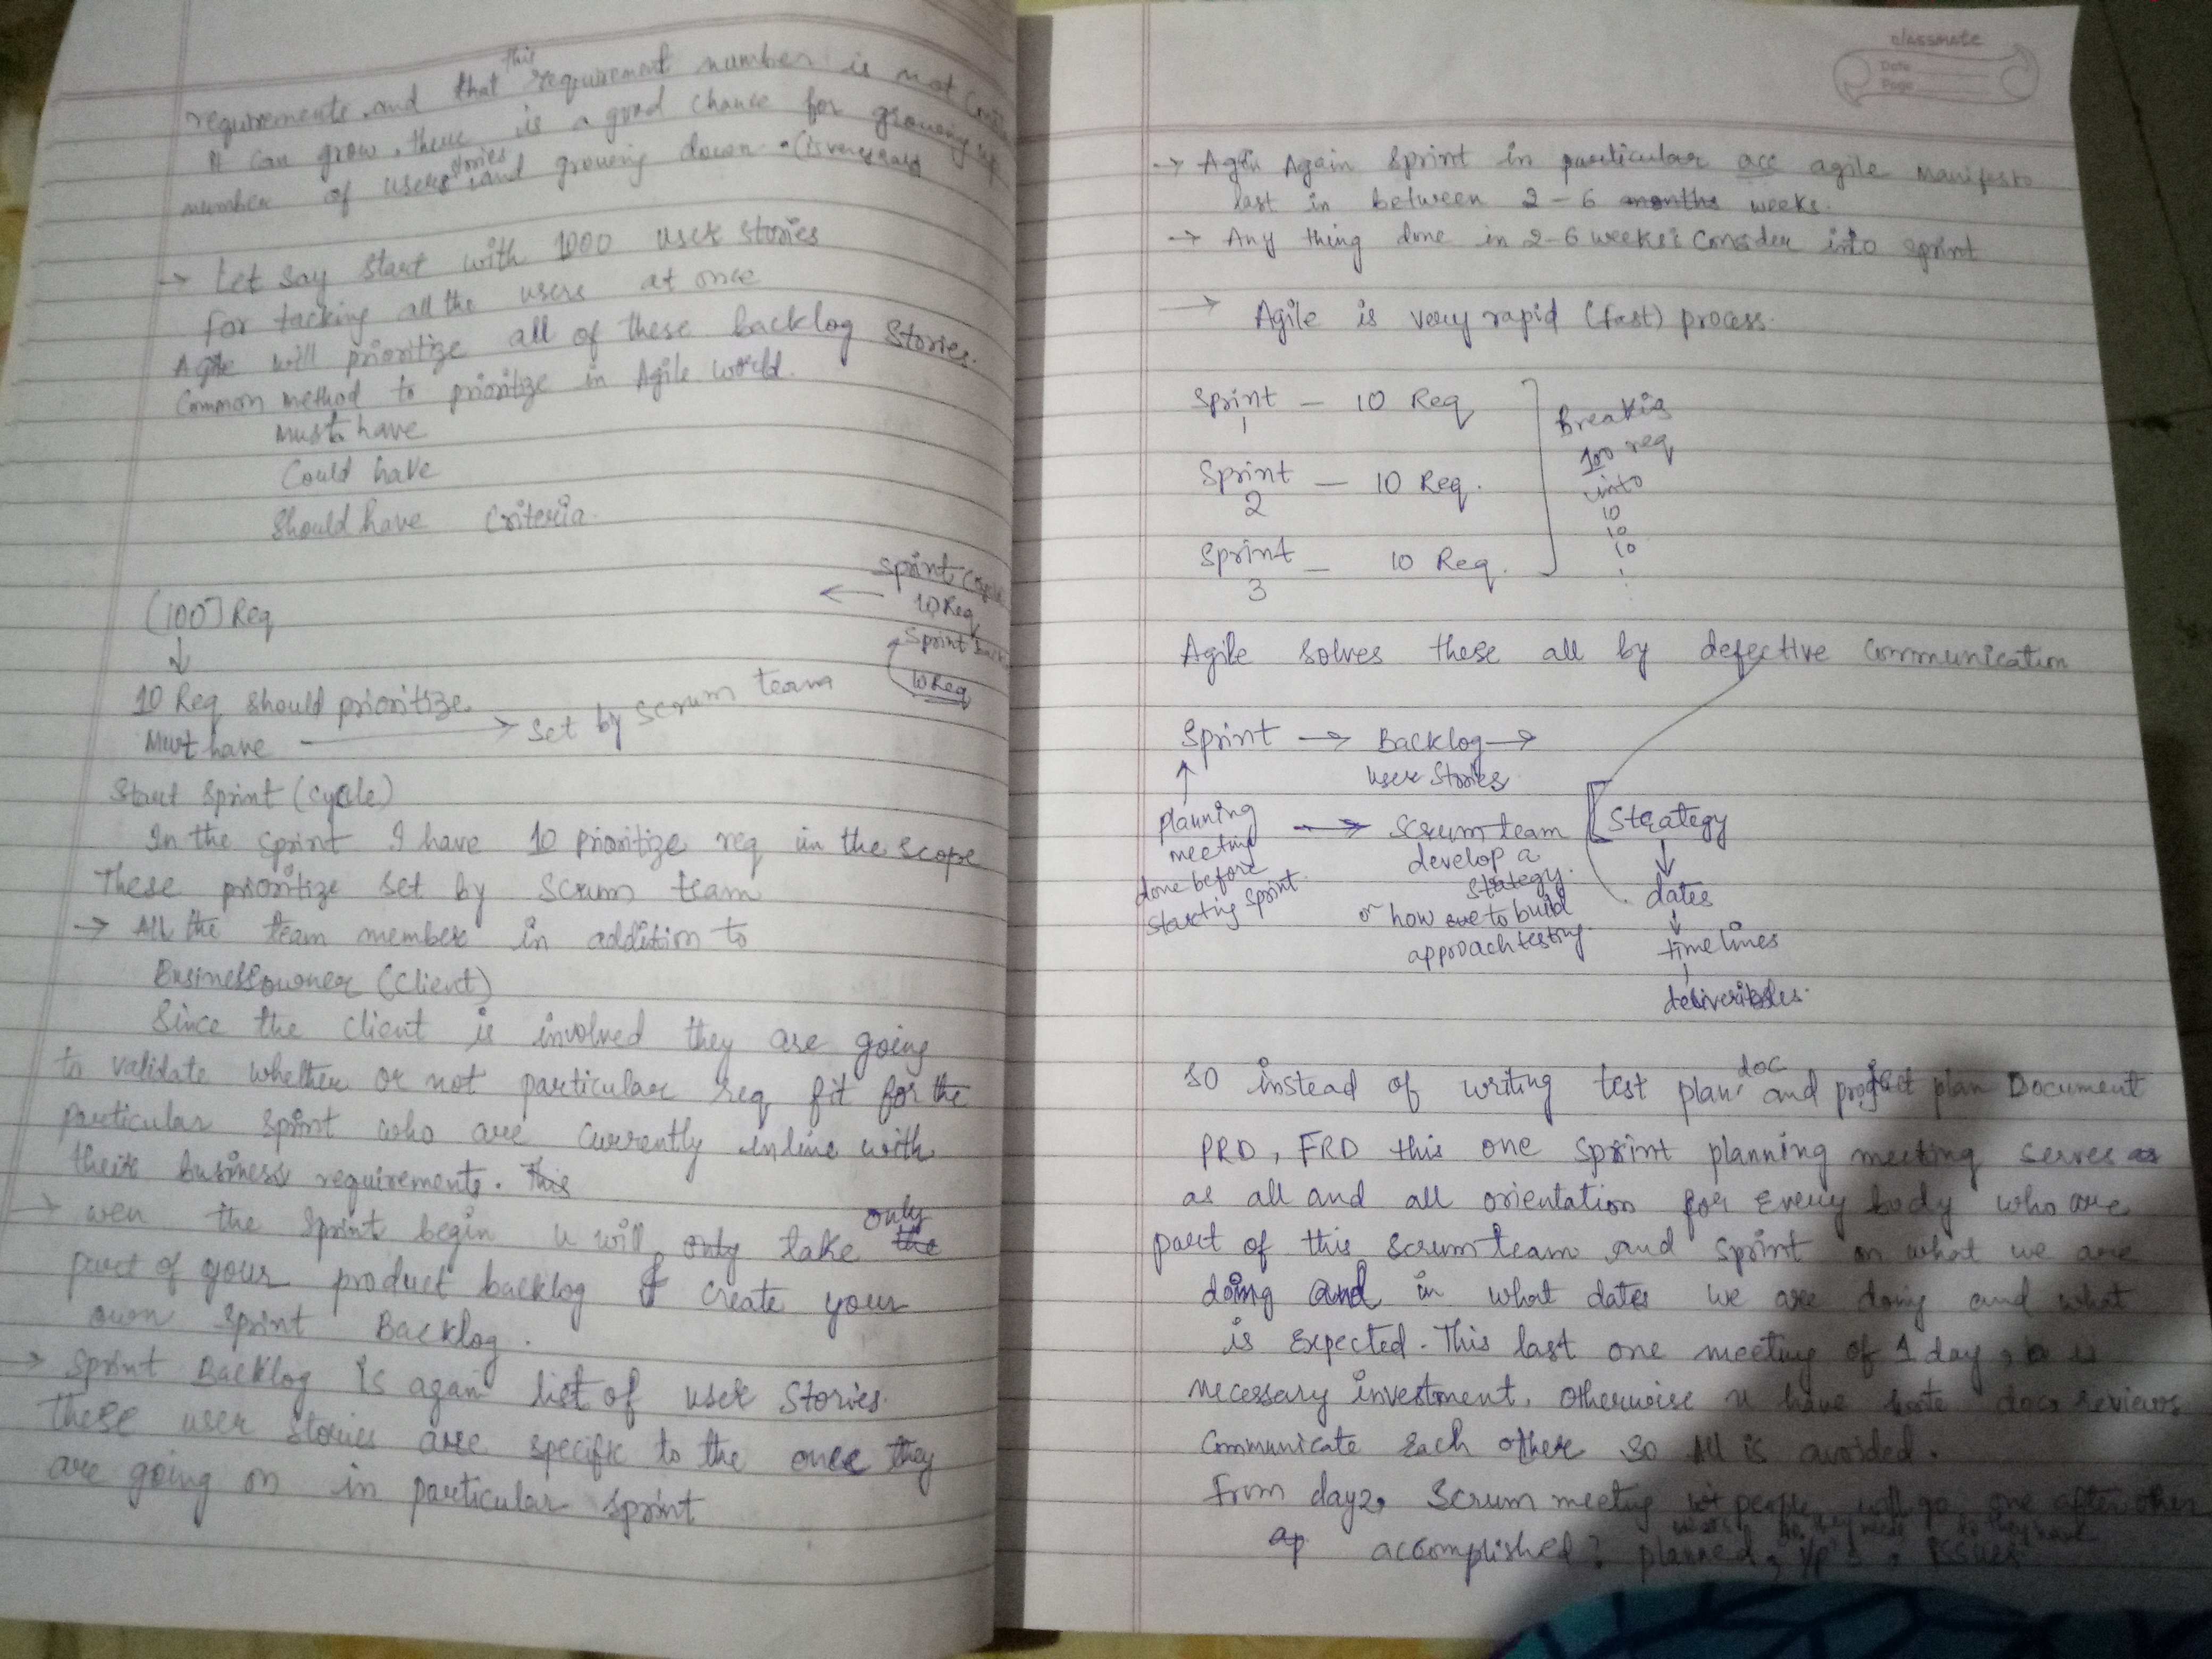 requirements and that this requirement number is not
It can grow, there is a good chance for growing up
number of users stories and growing down (is very rare)
→ Let say start with 1000 user stories
for tacking all the users at once
Agile will prioritize all of these backlog stories.
Common method to prioritize in Agile world.
Must have
Could have
Should have Criteria.
Sprint Cycle
← 10 Req
(100] Req
Sprint
↓
10 Req
10 Req should prioritize
Must have → Set by scrum team
Start Sprint (cycle)
In the sprint I have 10 prioritize req in the scope
These prioritize set by scrum team
→ All the team member in addition to
Business owner (Client)
Since the client is involved they are going
to validate whether or not particular req fit for the
particular sprint who are currently inline with
their business requirements. This
→ wen the sprint begin u will only take the only
part of your product backlog & create your
own Sprint Backlog.
→ Sprint Backlog is again list of user stories.
these user stories are specific to the ones they
are going on in particular sprint
classmate
Date
Page
→ Again Sprint in particular acc agile manifesto
last in between 2-6 months weeks.
→ Any thing done in 2-6 weeks: Consider into sprint
→ Agile is very rapid (fast) process.
Sprint 1 - 10 Req
Sprint 2 - 10 Req.
Sprint 3 - 10 Req.
Breakig
100 req
into
10
10
10
Agile solves these all by defective Communication
Sprint → Backlog →
user Stories
planning meeting done before starting sprint
→ Scrum team
develop a
Stategy.
or how to build
approach testing
Strategy
↓
dates
↓
timelines
deliveribles.
so instead of writing test plan doc and project plan Document
PRD, FRD this one sprint planning meeting serves as
as all and all orientation for Every body who are
part of this scrum team and sprint on what we are
doing and in what dates we are doing and what
is Expected. This last one meeting of 1 day,
necessary investment. Otherwise u have docs reviews
Communicate Each other so All is avoided.
From day2, Scrum meeting people will go one after other
ap accomplished? planned, i/p's, issues